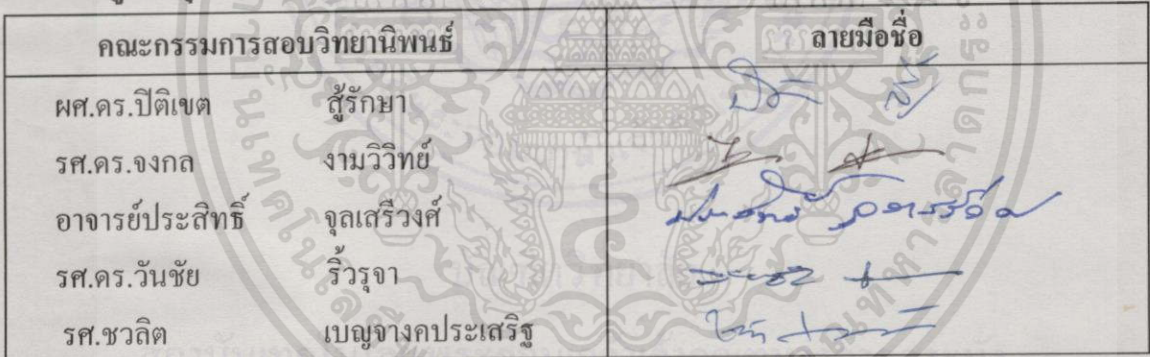 คณะกรรมการสอบวิทยานิพนธ์ ลายมือชื่อ
ผศ.ดร.ปิติเขต สู้รักษา
รศ.ดร.จงกล งามวิวิทย์
อาจารย์ประสิทธิ์ จุลเสรีวงศ์
รศ.ดร.วันชัย ริ้วรุจา
รศ.ชวลิต เบญจางคประเสริฐ